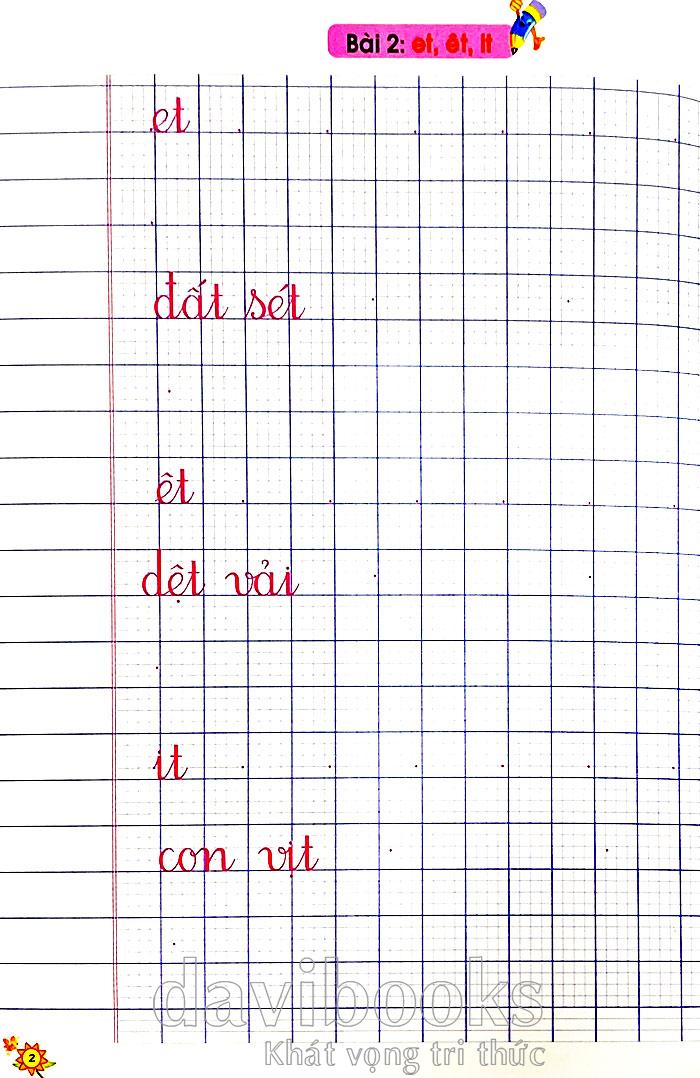 Bài 2: et, êt, it
et
đất sét
êt
dệt vải
it
con vịt
davibooks
Khát vọng tri thức
2